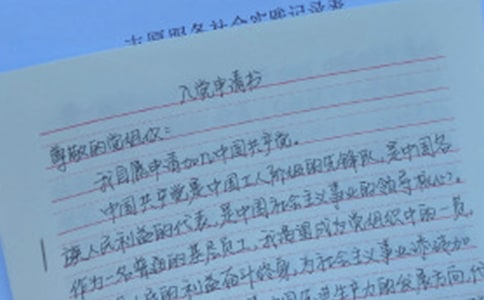 志愿服务社会实践记录表
入党申请书
尊敬的党组织:
我自愿申请加入中国共产党。
中国共产党是中国工人阶级的先锋队,是中国各
族人民利益的代表,是中国社会主义事业的领导核心。
作为一名普通的基层员工,我渴望成为党组织中的一员,
民的利益奋斗终身,为社会主义事业添砖加
生产力的发展方向,代